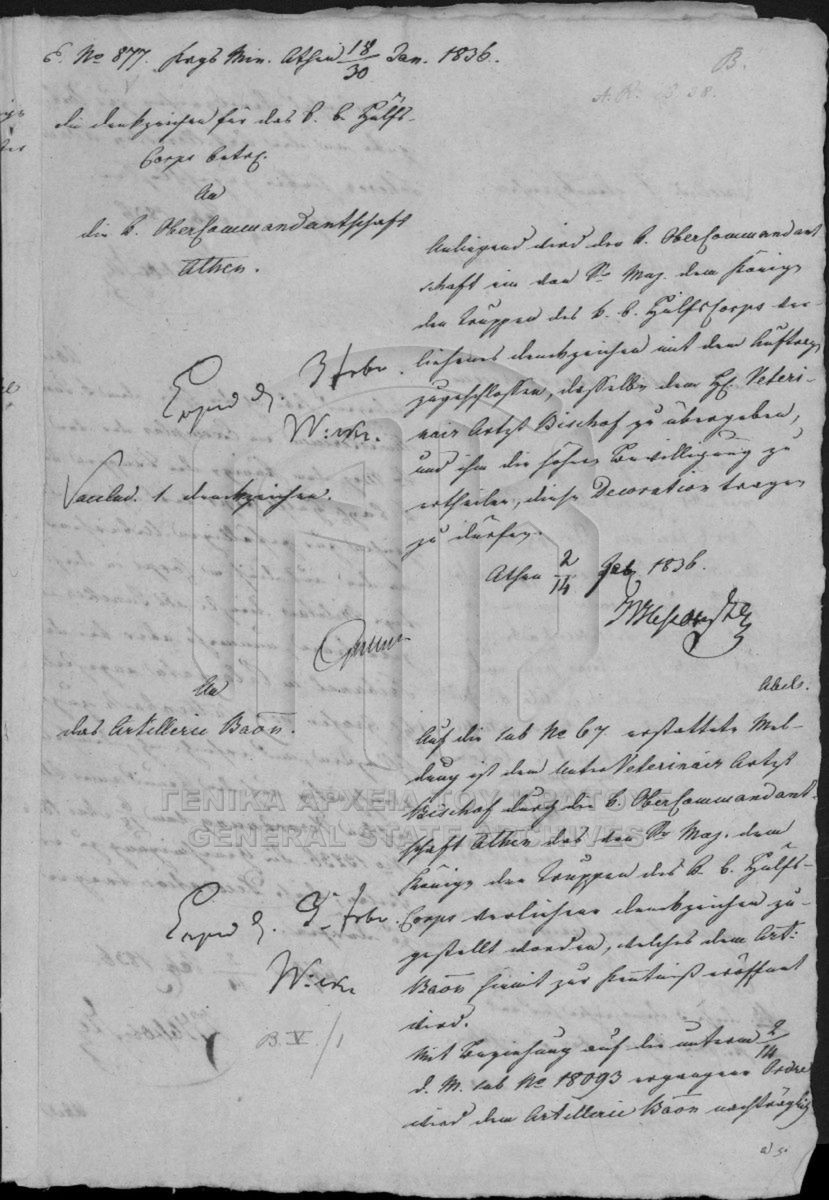 E. No 877. Krgs Min. Athen 18/30 Jan. 1836.
B.
die Denkzeichen für das k. b. Hülfs-
Corps betr.
An
die k. OberCommandantschaft
Athen.
Anliegend wird der k. OberCommandant
schaft ein von Sr Maj. dem Könige
den Truppen des k. b. HülfsCorps ver-
liehenes Denkzeichen mit dem Auftrage
zugeschlossen, dasselbe dem H. Veteri-
nair Artzt Bischof zu übergeben,
und ihm die höhere Bewilligung zu
ertheilen, diese Decoration tragen
zu dürfen.
Athen 2/14 Feb. 1836.
Exped d. 3 Febr.
1. Denkzeichen.
An
das Artillerie Baon.
Auf die sub No 67 erstattete Mel-
dung ist dem Unter Veterinair Artzt
Bischof durch die k. OberCommandant-
schaft Athen das von Sr Maj. dem
Könige den Truppen des k. b. Hülfs-
Corps verliehene Denkzeichen zu-
gestellt worden, welches dem Art:
Baon hiemit zur Kenntniß eröffnet
wird.
Exped d. 3. Febr.
B. V /1
Mit Beziehung auf die unterm 2/14
d. M. sub No 18093 ergangene Ordre
wird dem Artillerie Baon nachträglich
ΓΕΝΙΚΑ ΑΡΧΕΙΑ ΤΟΥ ΚΡΑΤΟΥΣ
GENERAL STATE ARCHIVES